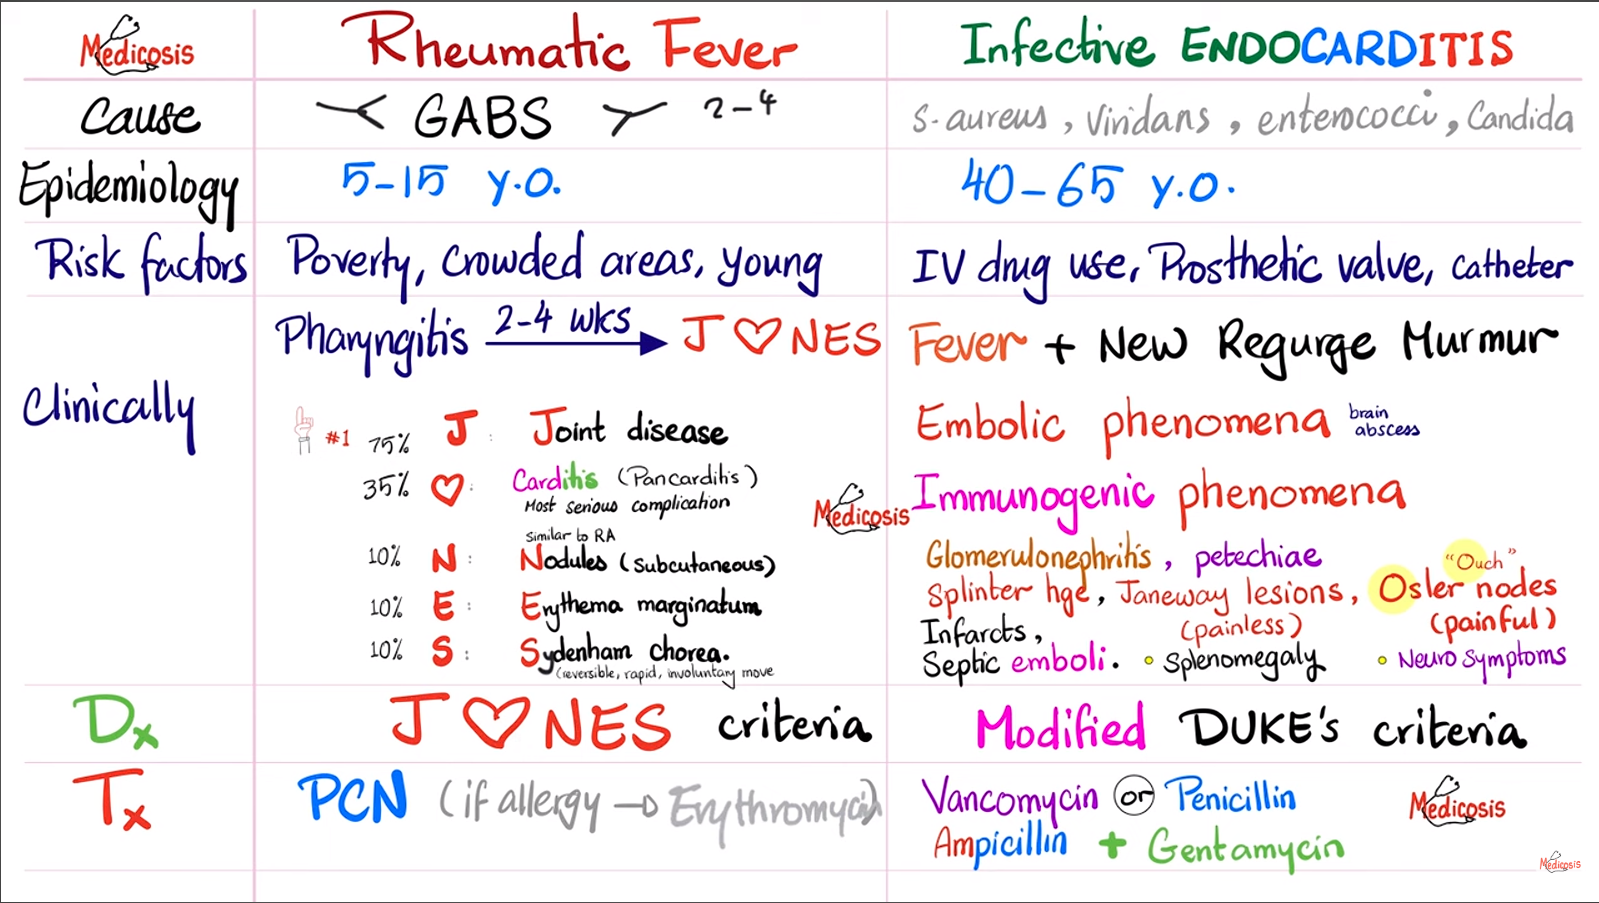 Medicosis Rheumatic Fever Infective ENDOCARDITIS
Cause GABS 2-4 S. aureus, Viridans, enterococci, Candida
Epidemiology 5-15 y.o. 40-65 y.o.
Risk factors Poverty, Crowded areas, young IV drug use, Prosthetic valve, catheter
Clinically
Pharyngitis 2-4 wks → J ♡ NES
#1 75% J : Joint disease
35% ♡ : Carditis (Pancarditis)
Most serious complication
similar to RA
10% N : Nodules (Subcutaneous)
10% E : Erythema marginatum
10% S : Sydenham chorea.
(reversible, rapid, involuntary move
Fever + New Regurge Murmur
Embolic phenomena brain
abscess
Medicosis
Immunogenic phenomena
Glomerulonephritis, petechiae "Ouch"
Splinter hge, Janeway lesions, Osler nodes
(painless) (painful)
Infarcts,
Septic emboli. • Splenomegaly • Neuro symptoms
Dx J ♡ NES criteria Modified DUKE's criteria
Tx PCN (if allergy → Erythromycin) Vancomycin or Penicillin
Ampicillin + Gentamycin
Medicosis
Medicosis